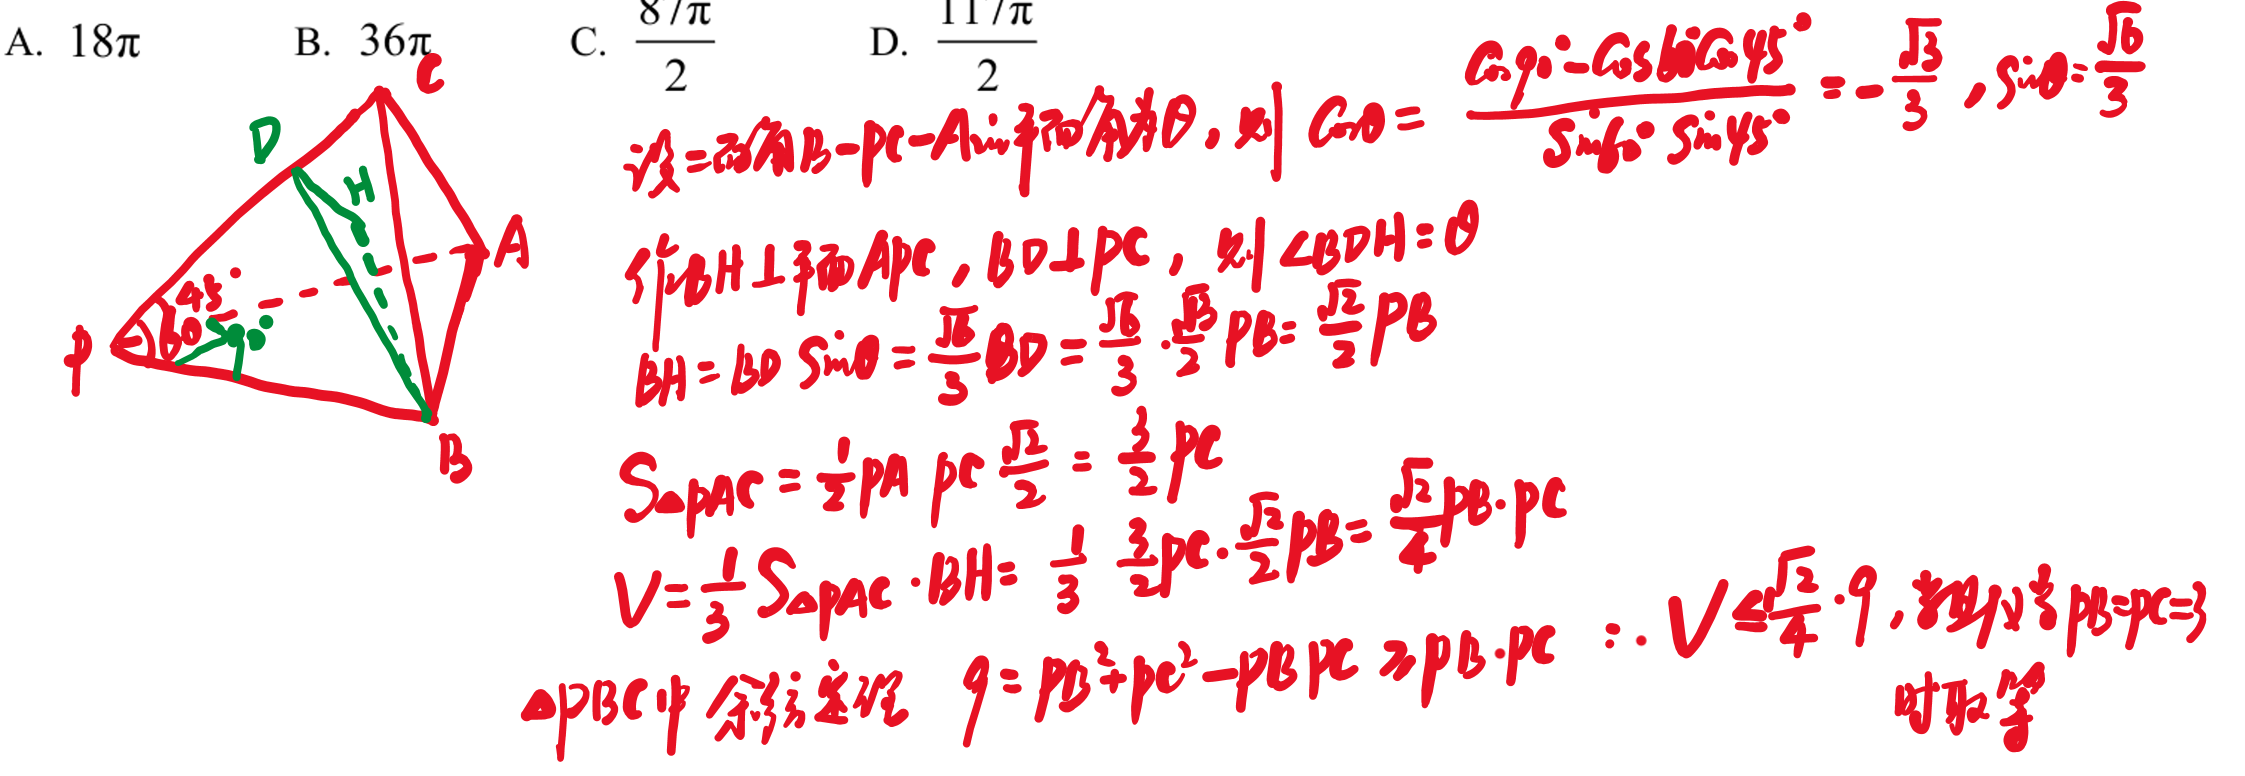 A. 18π B. 36π C. 87π/2 D. 117π/2
设二面角B-PC-A的平面角为θ,则 cosθ= (cos90°-cos60°cos45°)/(sin60° sin45°) = -√3/3 , sinθ=√6/3
作BH⊥平面APC , BD⊥PC , 则∠BDH=θ
BH=BD sinθ=√6/3 BD=√6/3·√3/2 PB=√2/2 PB
S△PAC=1/2 PA PC √2/2=3/2 PC
V=1/3 S△PAC·BH=1/3 3/2 PC·√2/2 PB=√2/4 PB·PC
△PBC中 余弦定理 9=PB²+PC²-PB PC ≥PB·PC ∴ V≤√2/4·9 , 当且仅当PB=PC=3
时取等
C
D
H
A
45°
60°
P
B